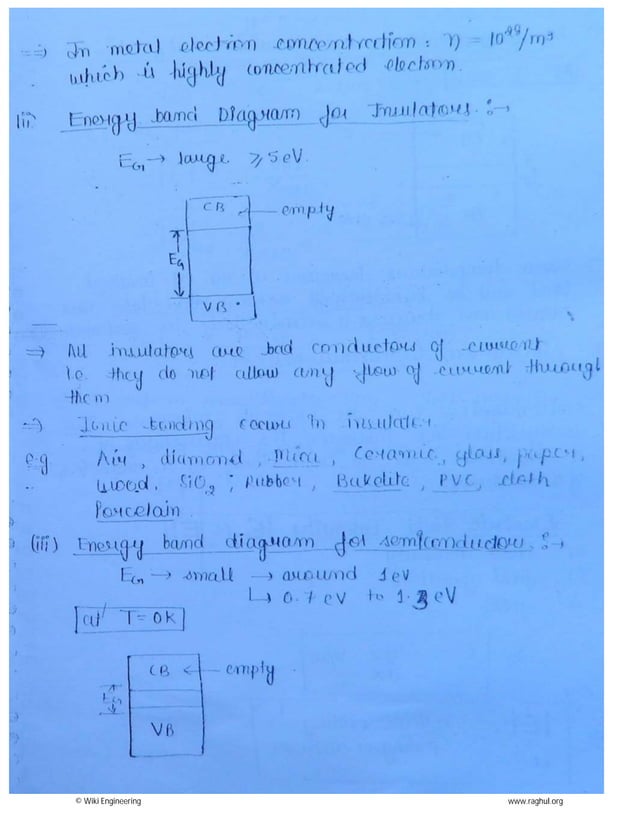 ⇒ In metal electron concentration : η = 10²⁹/m³
which is highly concentrated electron.
(ii) Energy band Diagram for Insulators :→
EG → large ≥ 5 eV.
CB
empty
EG
VB
⇒ All insulators are bad conductors of current
i.e. they do not allow any flow of current through
them
⇒ Ionic bonding occurs in insulator
e.g Air, diamond, Mica, Ceramic, glass, paper,
wood, SiO₂; Rubber, Bakelite, PVC, cloth
Porcelain
(iii) Energy band diagram for semiconductors :→
EG → small → around 1 eV
↳ 0.7 eV to 1.3 eV
at T = 0K
CB ← empty
EG
VB
© Wiki Engineering
www.raghul.org